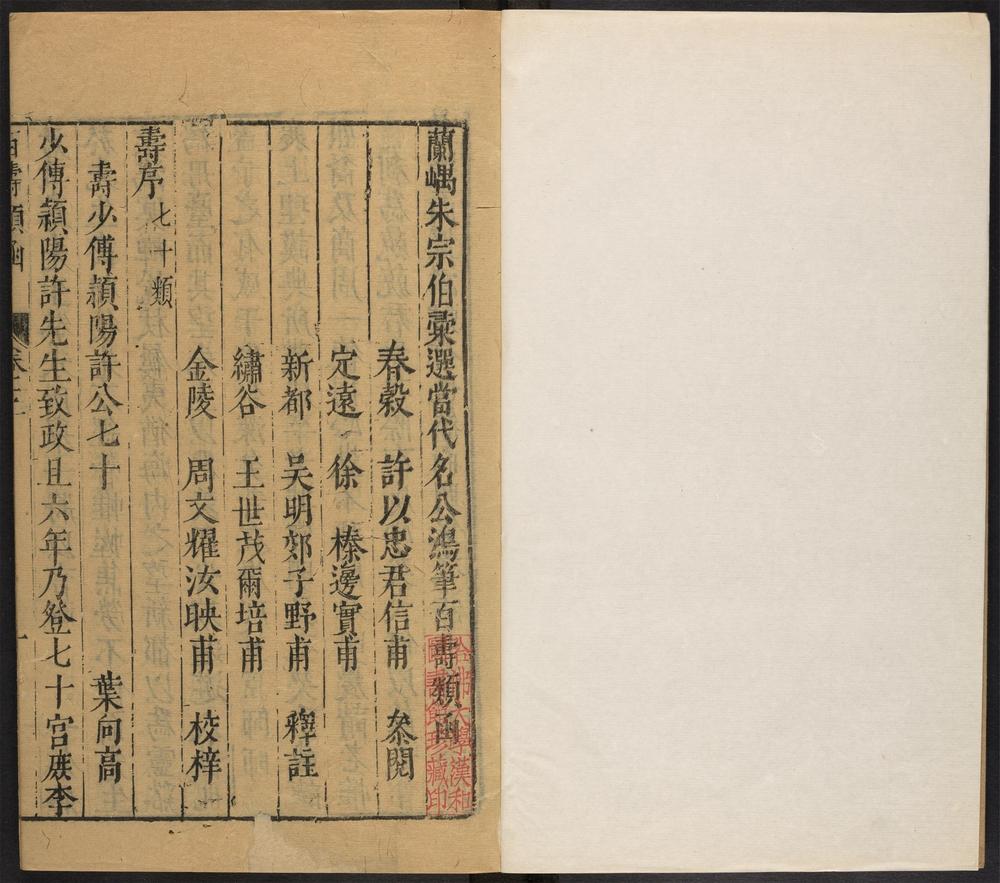 蘭嵎朱宗伯彙選當代名公鴻筆百壽類函
春穀 許以忠君信甫 叅閱
定遠 徐 榛邊實甫
新都 吳明郊子野甫 釋註
繡谷 王世茂爾培甫
金陵 周文耀汝映甫 校梓
壽序 七十類
壽少傅潁陽許公七十 葉向高
少傅潁陽許先生致政且六年乃登七十宮庶李
百壽類函 卷之三 一
哈佛大學漢和
圖書館珍藏印